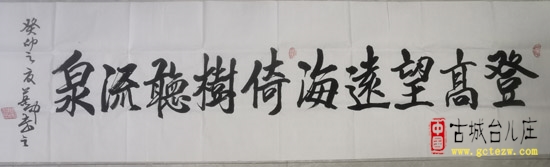 登高望遠海倚樹聽流泉
癸卯之夏
中国
古城台儿庄
www.gctezw.com